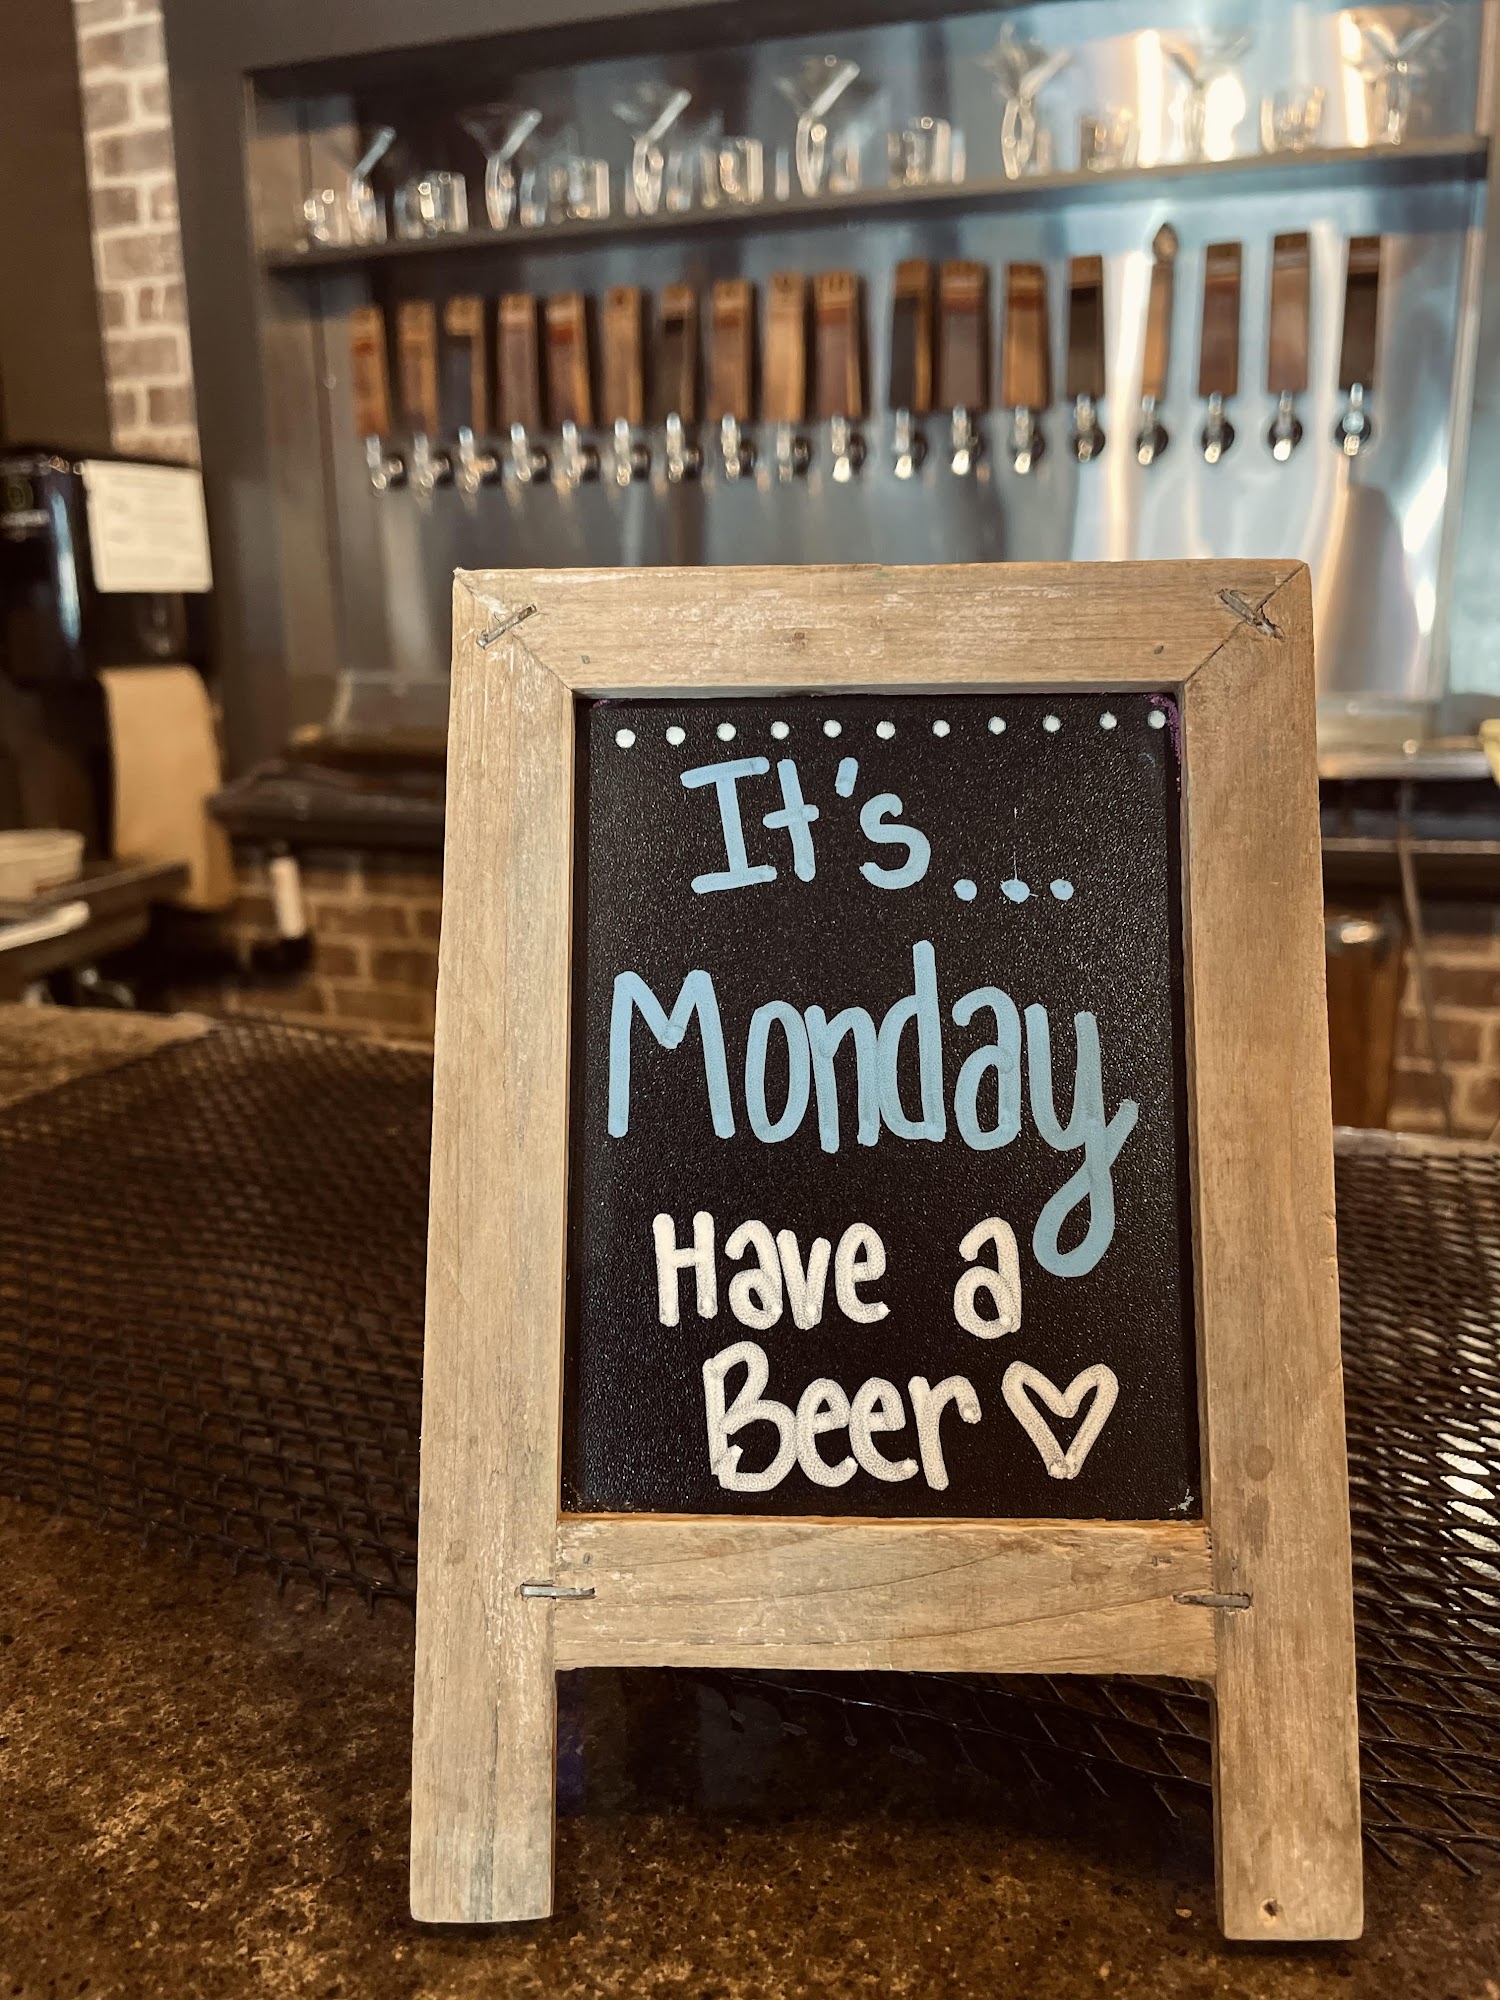 It's...
Monday
Have a
Beer ♡